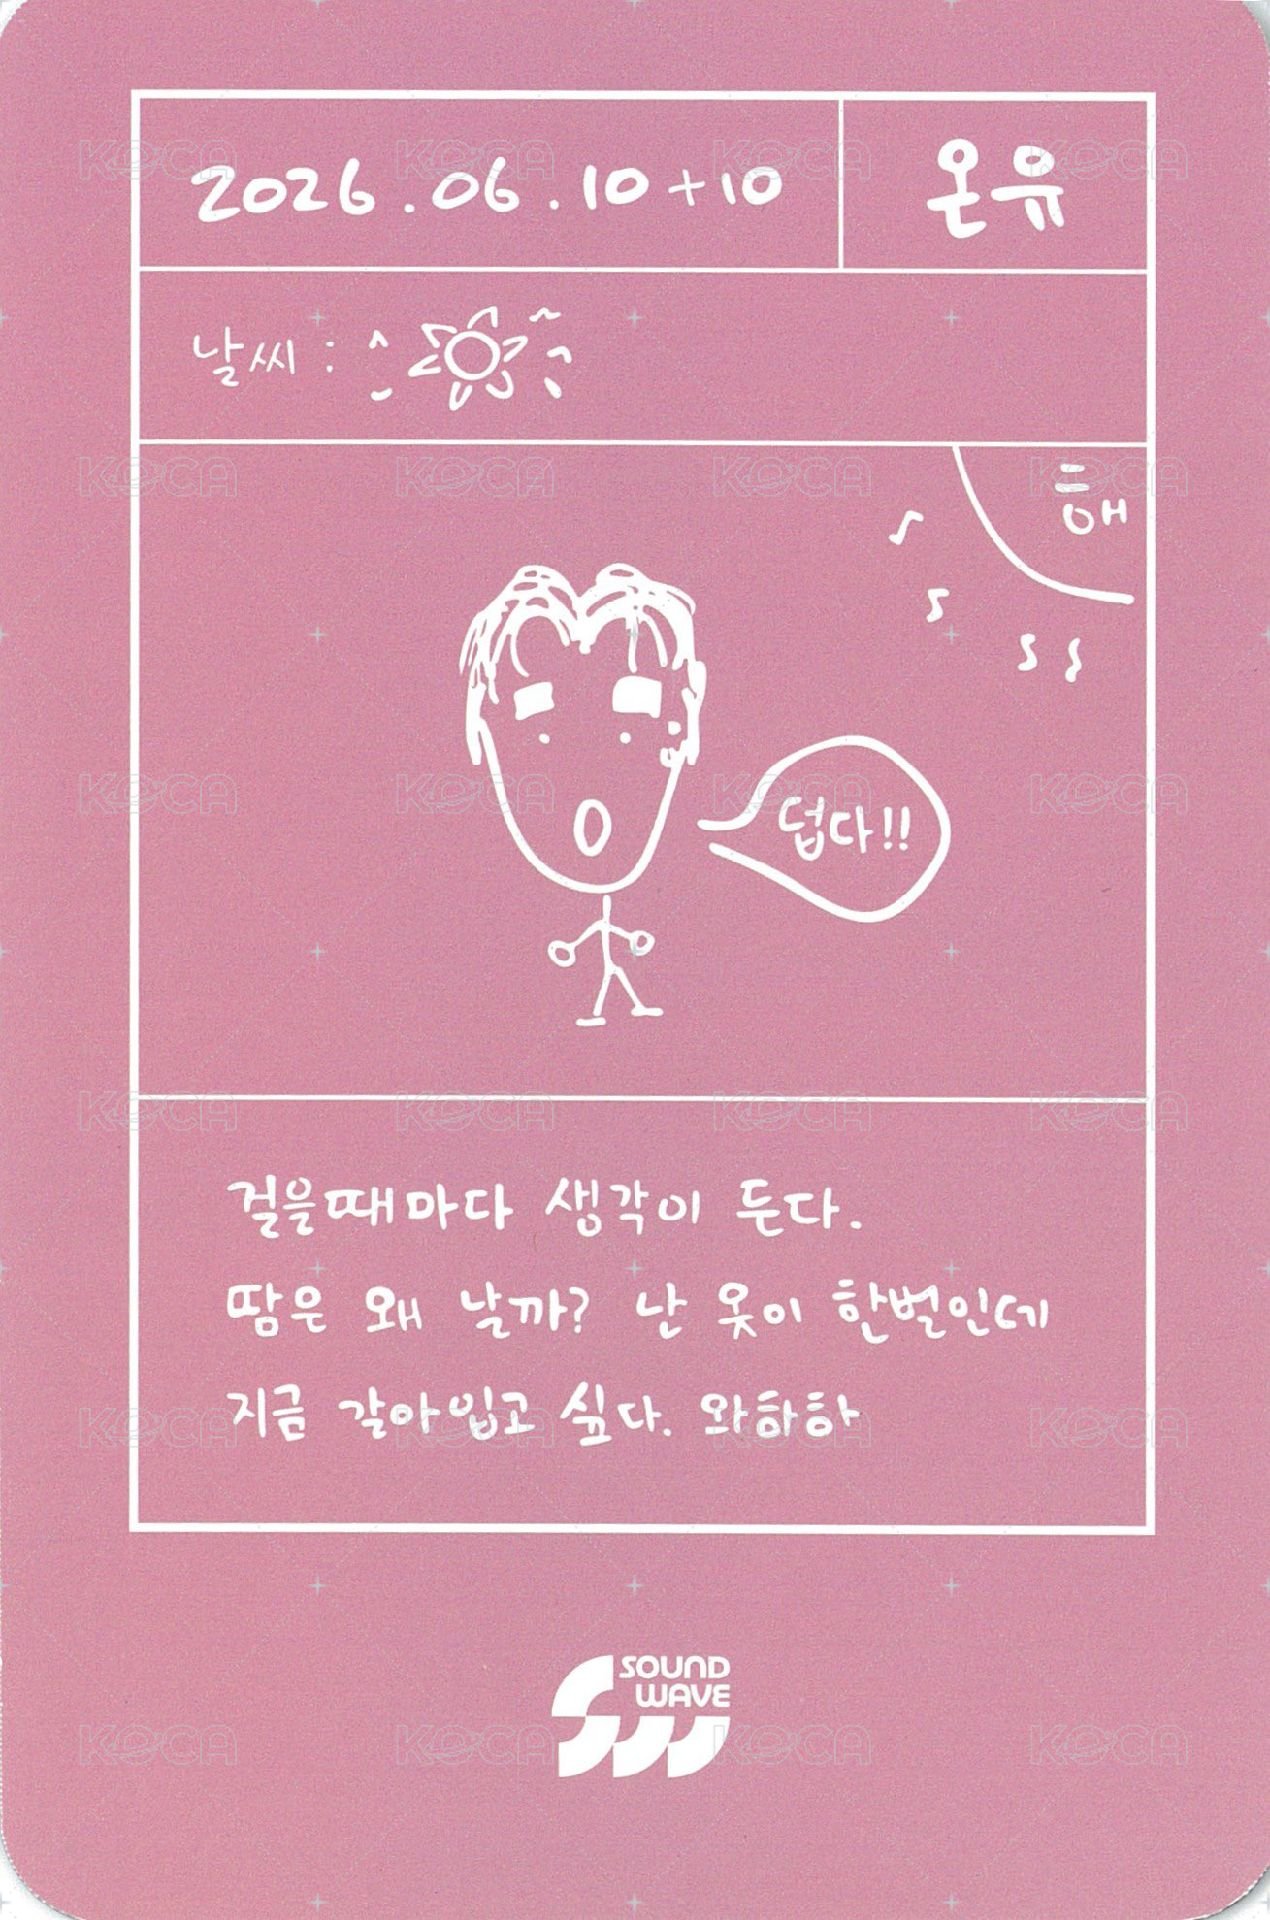 2026.06.10+10
온유
날씨 :
해
덥다!!
걸을때마다 생각이 둔다.
땀은 왜 날까? 난 옷이 한벌인데
지금 갈아입고 싶다. 와하하
SOUND
WAVE
KOCA